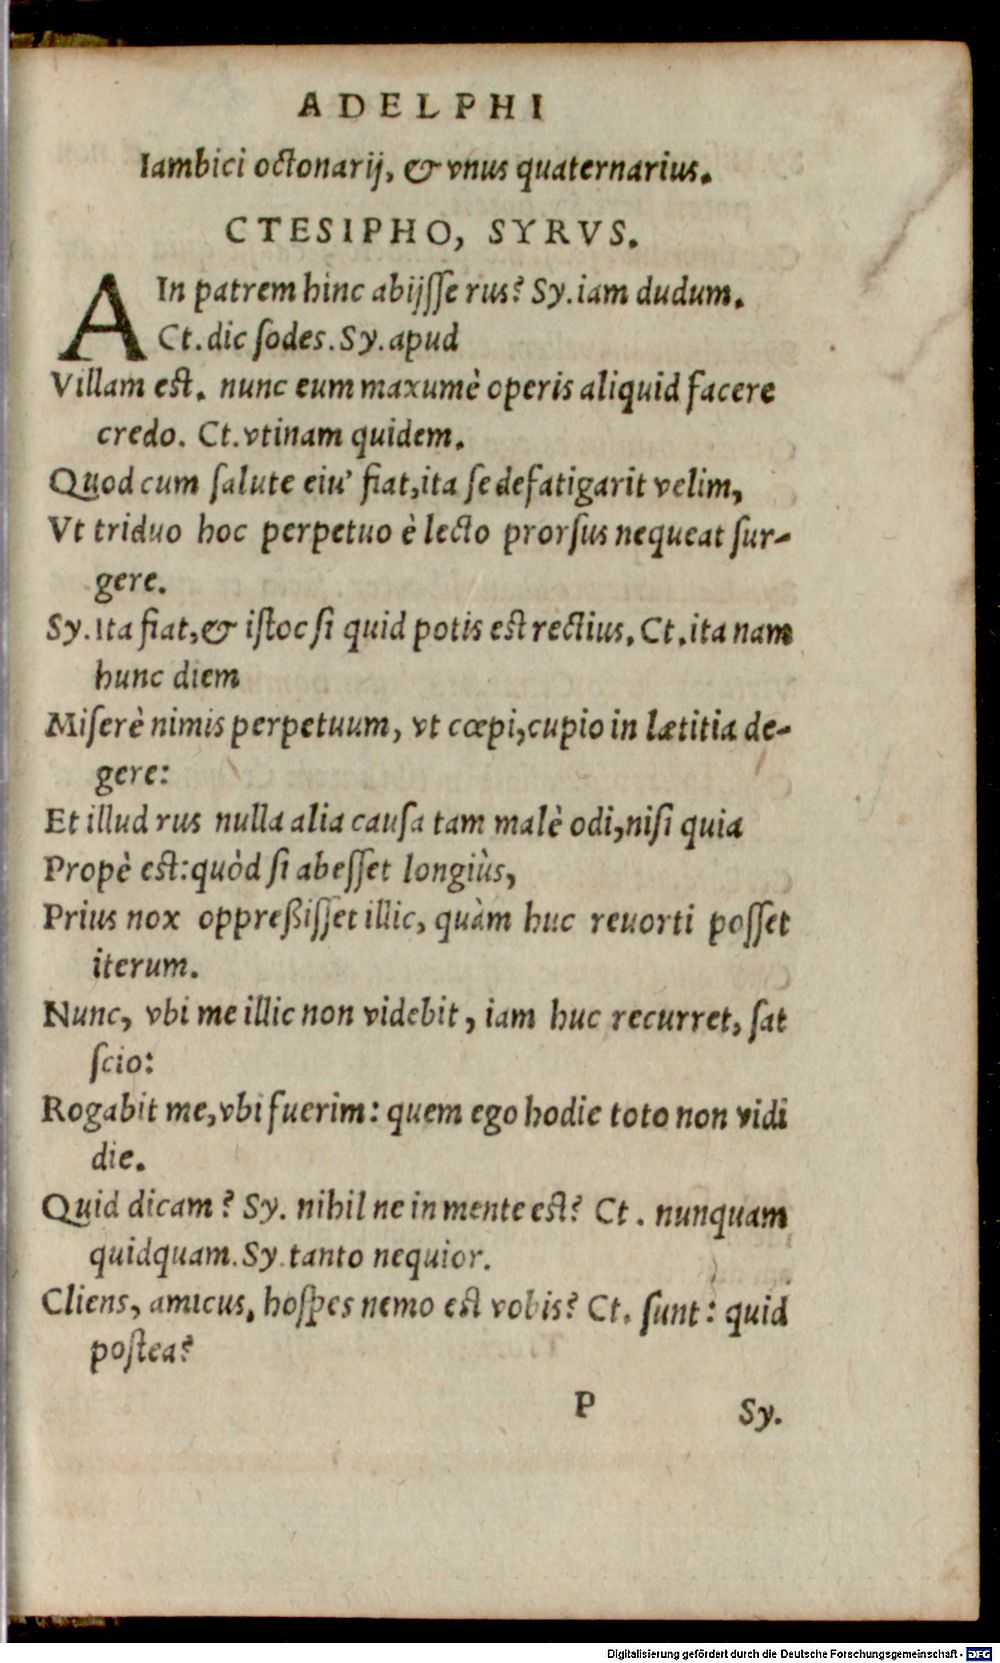 ADELPHI
Iambici octonarij, & vnus quaternarius.
CTESIPHO, SYRVS.
AIn patrem hinc abijſſe rus? Sy. iam dudum.
Ct. dic ſodes. Sy. apud
Villam est. nunc eum maxumè operis aliquid facere
credo. Ct. vtinam quidem.
Quod cum ſalute eiu' fiat, ita ſe defatigarit velim,
Vt triduo hoc perpetuo è lecto prorſus nequeat ſur-
gere.
Sy. Ita fiat, & iſtoc ſi quid potis est rectius. Ct. ita nam
hunc diem
Miſerè nimis perpetuum, vt cœpi, cupio in lætitia de-
gere:
Et illud rus nulla alia cauſa tam malè odi, niſi quia
Propè est: quòd ſi abeſſet longiùs,
Prius nox oppreßiſſet illic, quàm huc reuorti poſſet
iterum.
Nunc, vbi me illic non videbit, iam huc recurret, ſat
ſcio:
Rogabit me, vbi fuerim: quem ego hodie toto non vidi
die.
Quid dicam? Sy. nihil ne in mente est? Ct. nunquam
quidquam. Sy. tanto nequior.
Cliens, amicus, hoſpes nemo est vobis? Ct. ſunt: quid
poſtea?
P Sy.
Digitalisierung gefördert durch die Deutsche Forschungsgemeinschaft - DFG